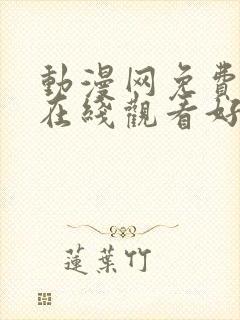 動漫网免費
在綫觀看好
蓮葉竹